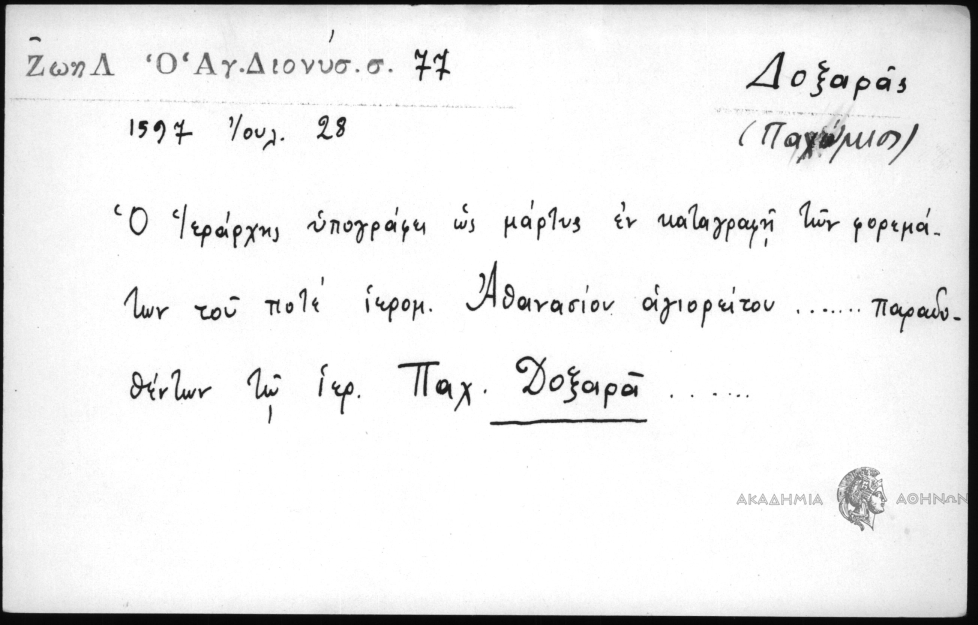 Ζωη Λ Ὁ Ἁγ.Διονύσ.σ. 77
Δοξαρᾶς
1597 Ἰουλ. 28
(Παχώμιος)
Ὁ Ἱεράρχης ὑπογράφει ὡς μάρτυς ἐν καταγραφῇ τῶν φορεμά-
των τοῦ ποτέ ἱερομ. Ἀθανασίου ἁγιορείτου ....... παραδο-
θέντων τῷ ἱερ. Παχ. Δοξαρᾶ ......
ΑΚΑΔΗΜΙΑ ΑΘΗΝΩΝ